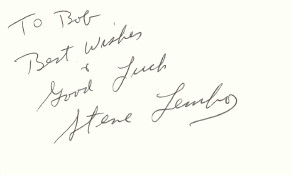 To Bob
Best Wishes
&
Good Luck
Steve Lembo